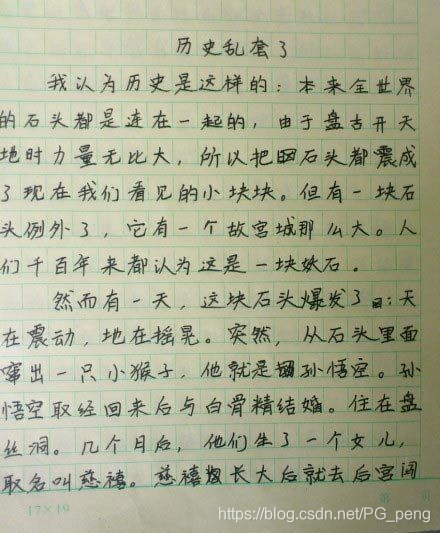 历史乱套了
我认为历史是这样的：本来全世界
的石头都是连在一起的，由于盘古开天
地时力量无比大，所以把石头都震成
了现在我们看见的小块块。但有一块石
头例外了，它有一个故宫城那么大。人
们千百年来都认为这是一块妖石。
然而有一天，这块石头爆发了：天
在震动，地在摇晃。突然，从石头里面
窜出一只小猴子，他就是孙悟空。孙
悟空取经回来后与白骨精结婚。住在盘
丝洞。几个月后，他们生了一个女儿，
取名叫慈禧。慈禧长大后就去后宫闯
17×19
https://blog.csdn.net/PG_peng